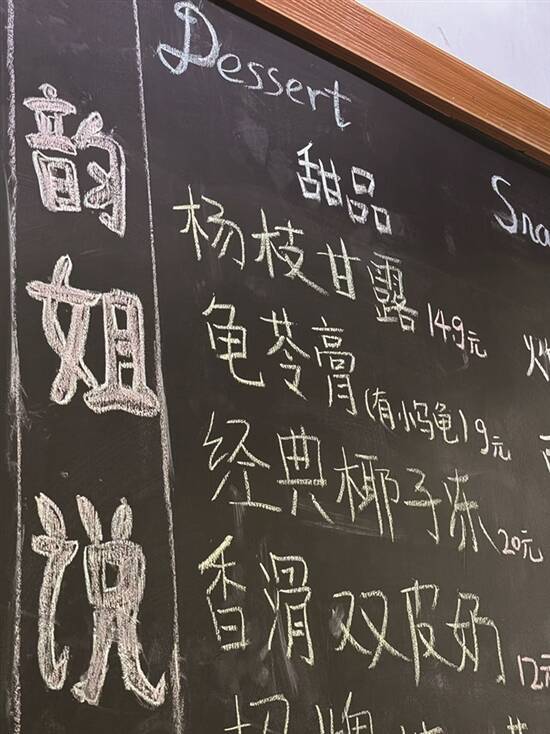 韵姐说
Dessert
甜品
杨枝甘露 149元
龟苓膏(有小乌龟)9元
经典椰子冻 20元
香滑双皮奶 12元